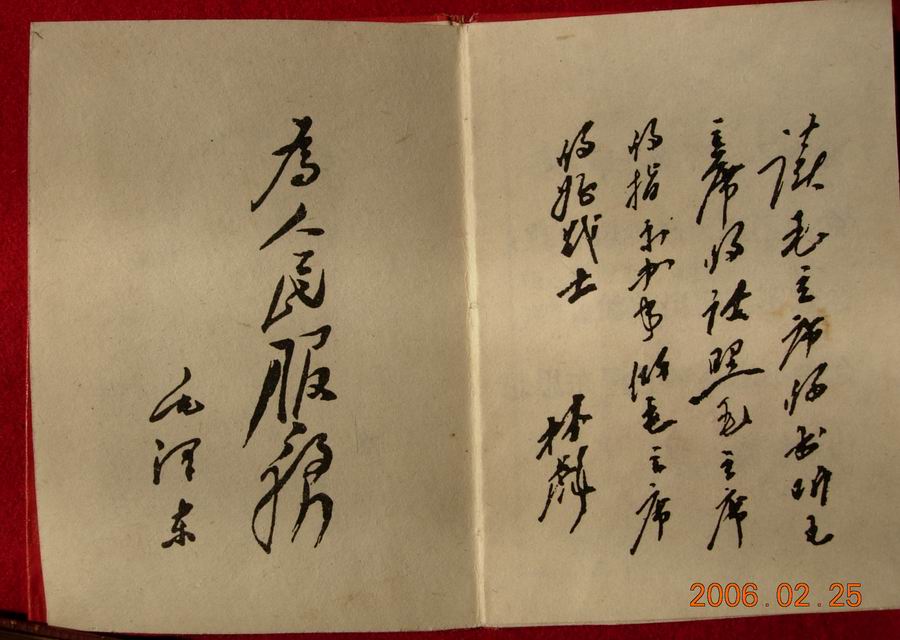 為人民服務
毛泽东
读毛主席的书听毛
主席的话照毛主席
的指示办事做毛主席
的好战士
林彪
2006.02.25